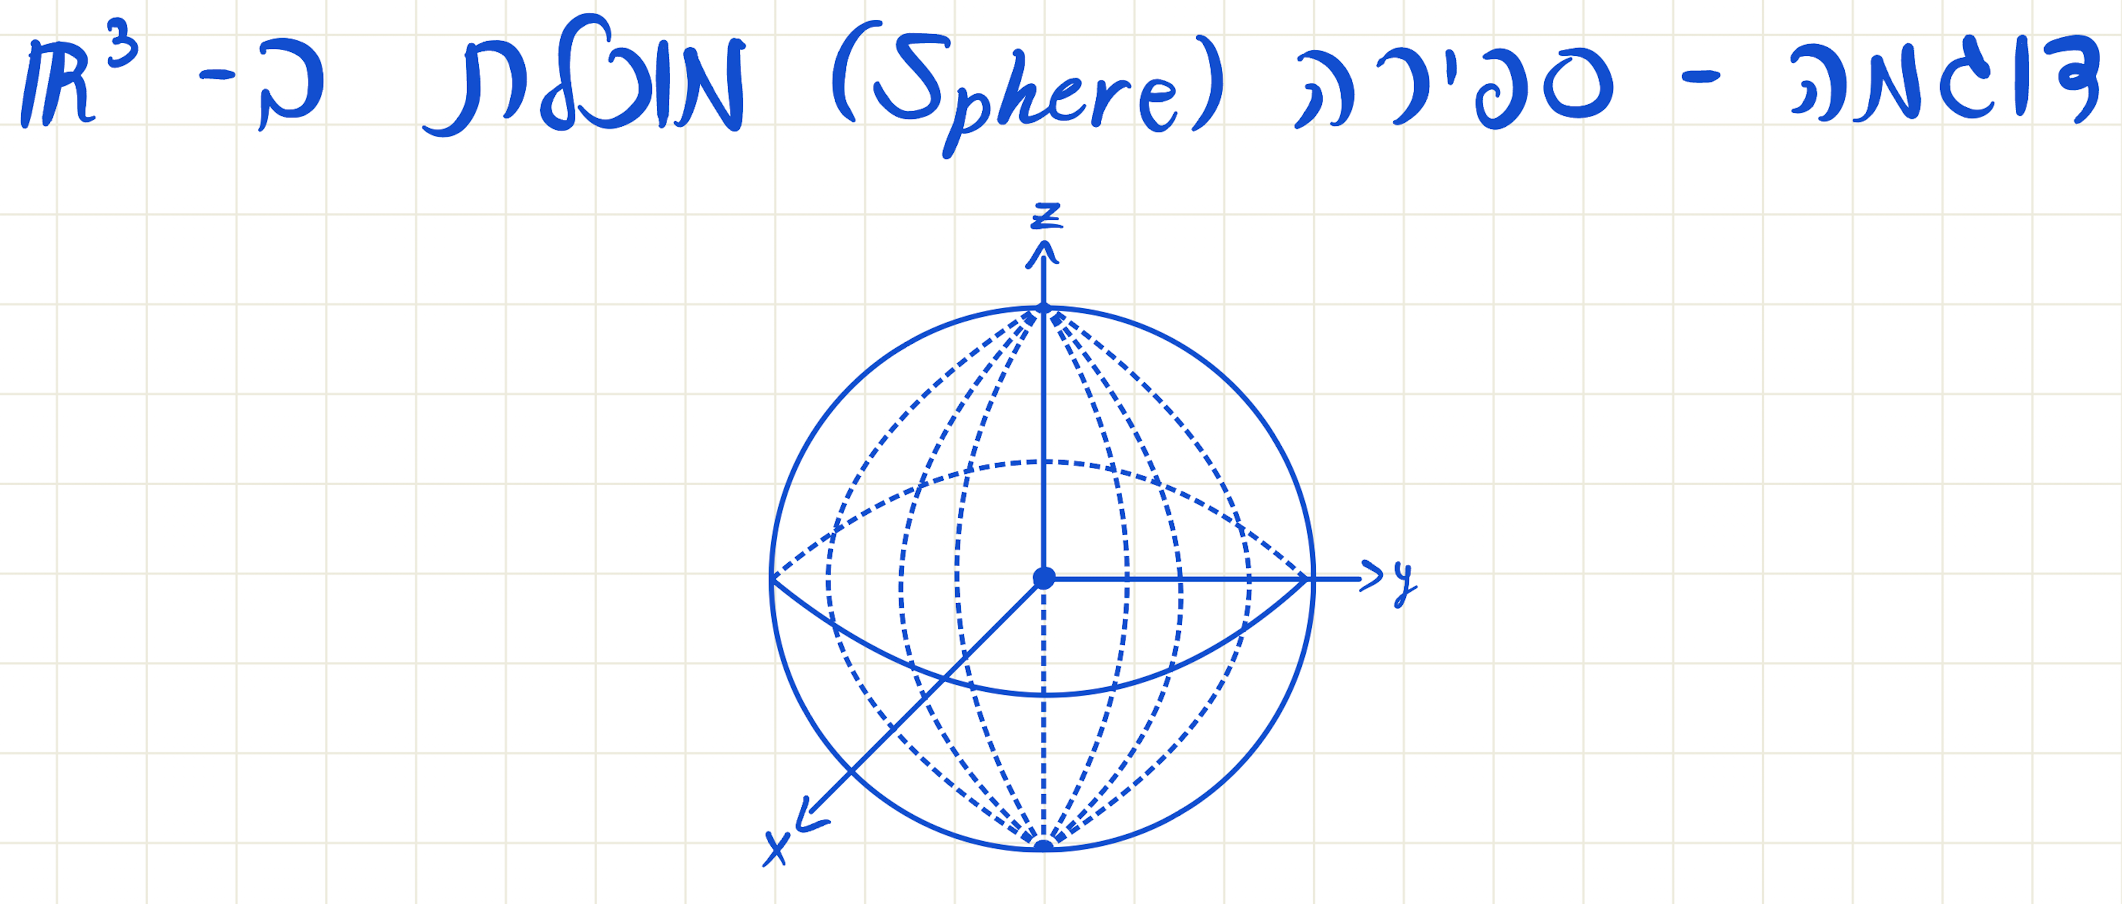 דוגמה - ספירה (Sphere) מוכלת ב- ℝ³
z
y
x